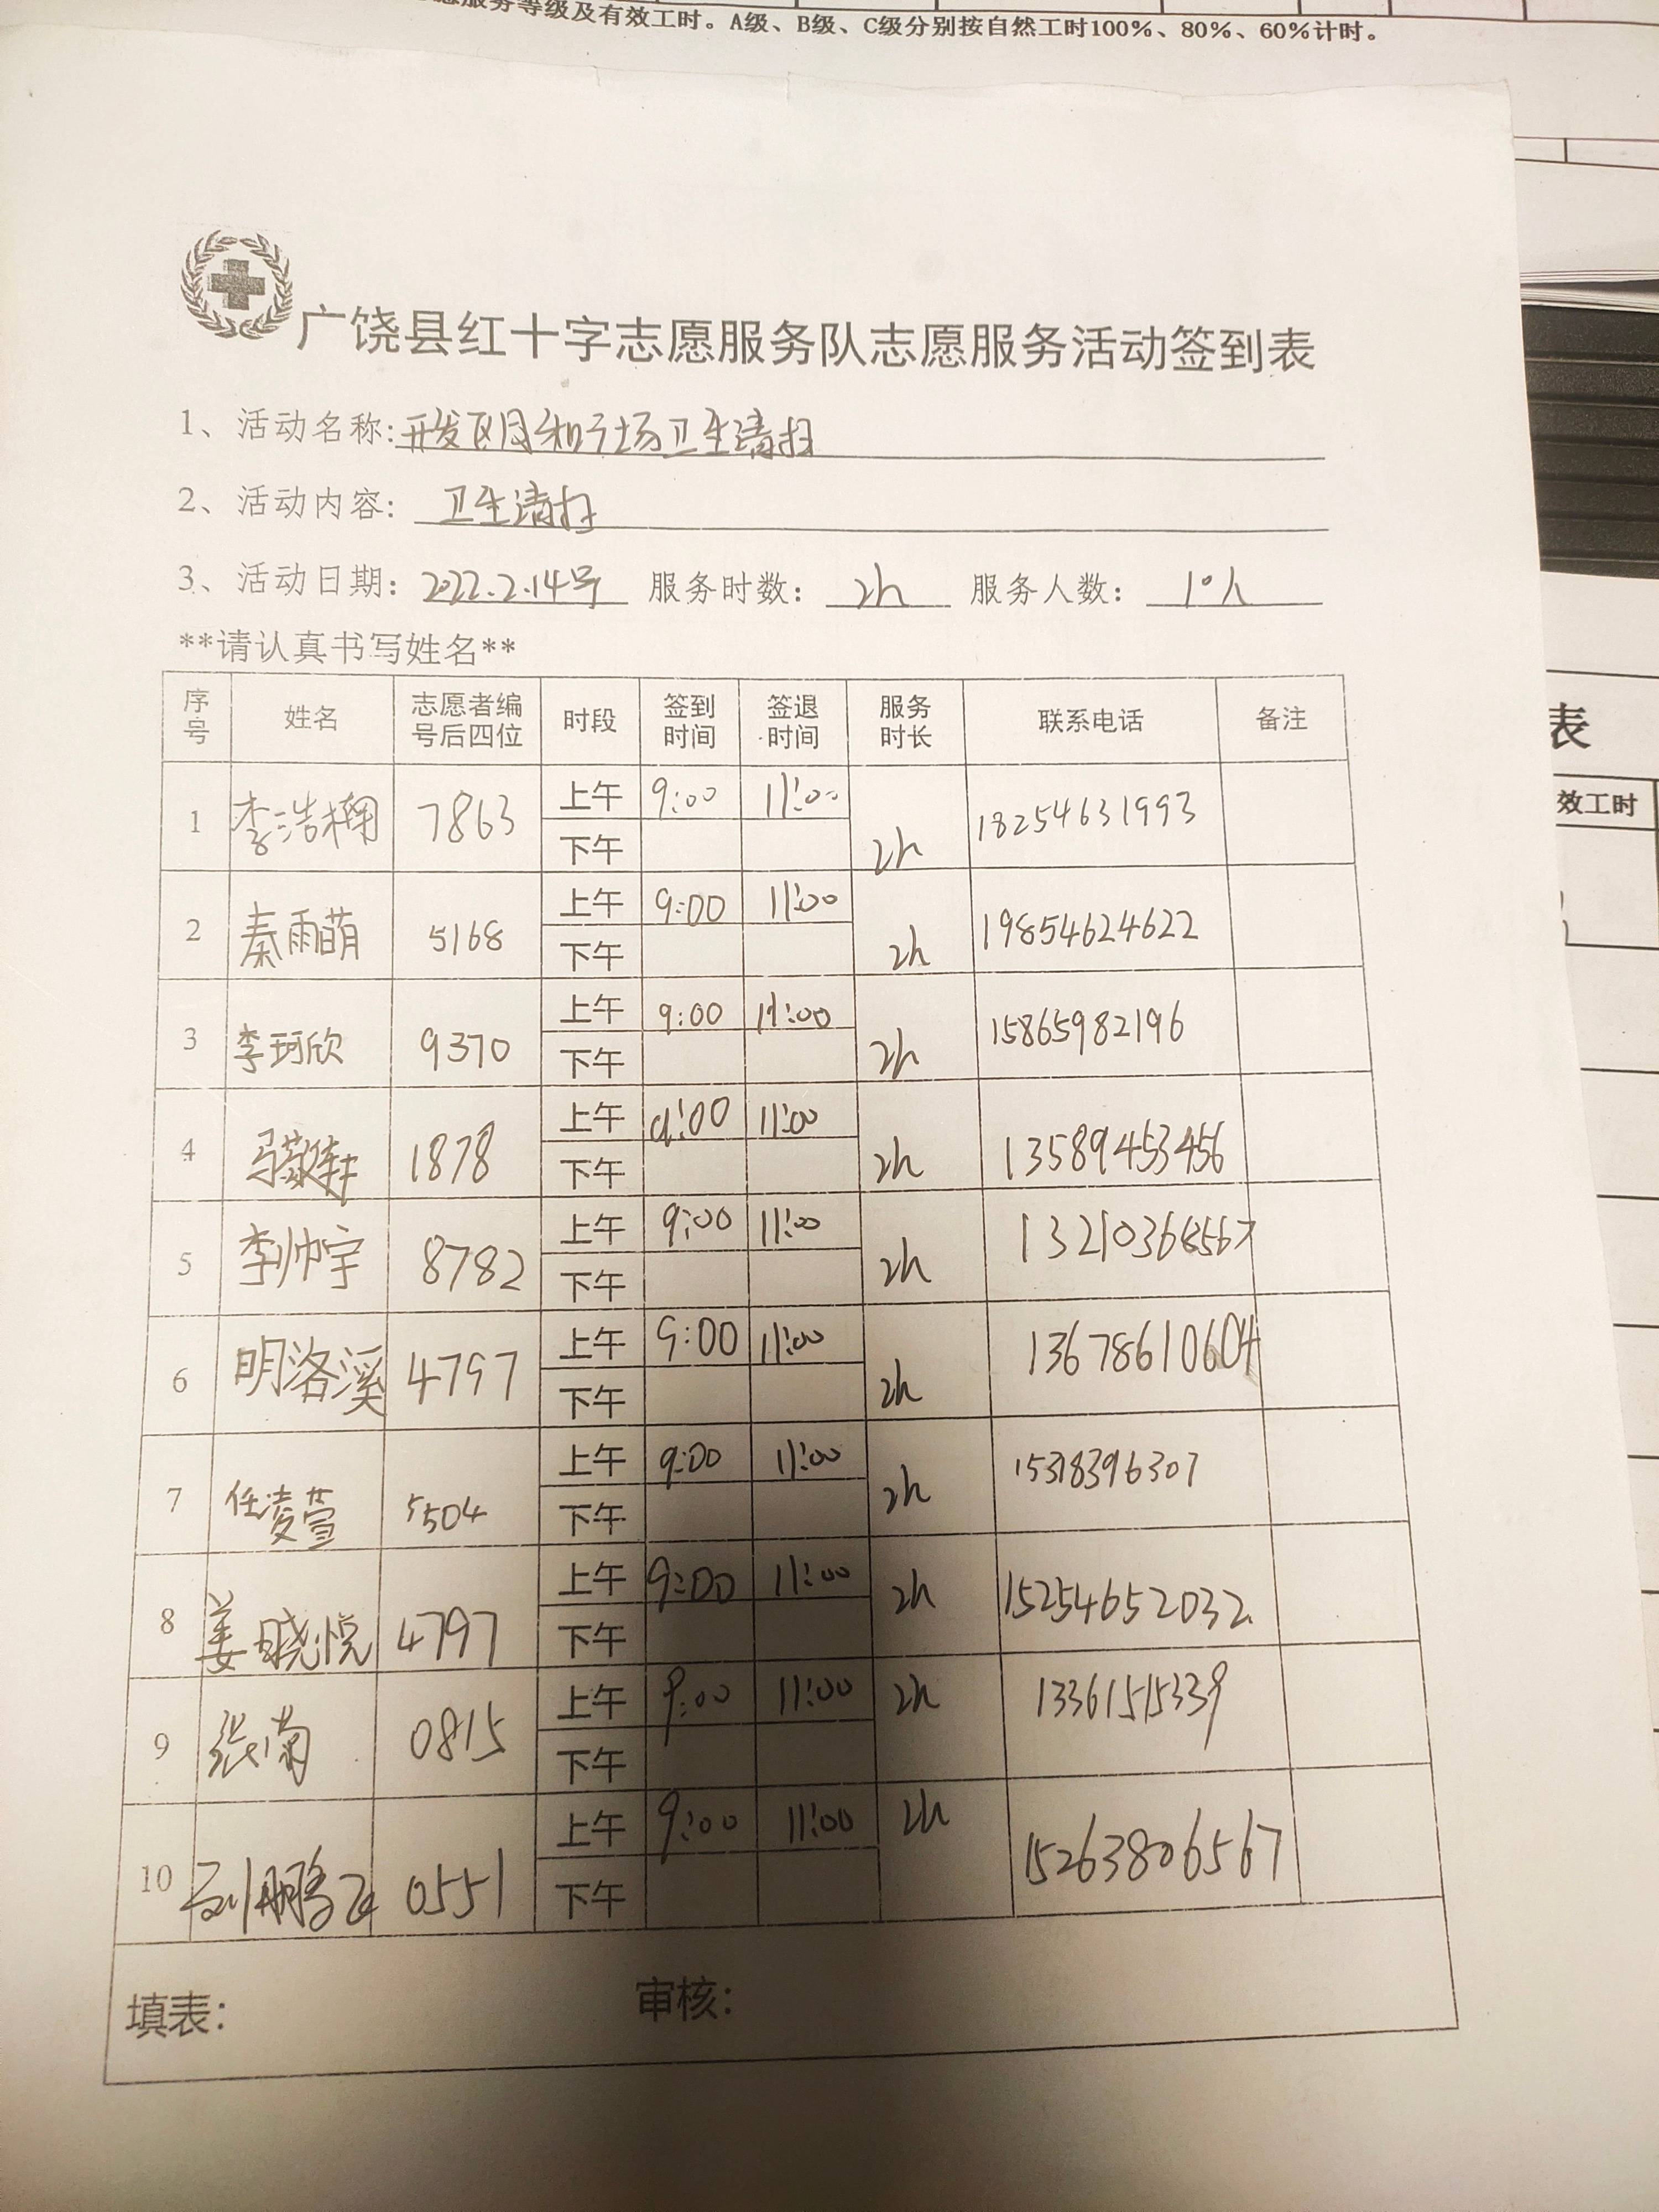 志愿服务等级及有效工时。A级、B级、C级分别按自然工时100%、80%、60%计时。
广饶县红十字志愿服务队志愿服务活动签到表
1、活动名称:开发区月和广场卫生清扫
2、活动内容: 卫生清扫
3、活动日期: 2022.2.14号 服务时数: 2h 服务人数: 10人
**请认真书写姓名**
序号 姓名 志愿者编号后四位 时段 签到时间 签退时间 服务时长 联系电话 备注
1 李浩 7863 上午 9:00 11:00 2h 18254631993
下午
2 秦雨萌 5168 上午 9:00 11:00 2h 19854624622
下午
3 李珂欣 9370 上午 9:00 11:00 2h 15865982196
下午
4 马 1878 上午 9:00 11:00 2h 13589453456
下午
5 李帅宇 8782 上午 9:00 11:00 2h 13210368567
下午
6 明洛溪 4797 上午 9:00 11:00 2h 13678610604
下午
7 任凌萱 5504 上午 9:00 11:00 2h 15318396307
下午
8 姜晓悦 4797 上午 9:00 11:00 2h 15254652032
下午
9 张菊 0815 上午 9:00 11:00 2h 13361515339
下午
10 刘鹏飞 0551 上午 9:00 11:00 2h 15263806567
下午
填表: 审核:
表
效工时